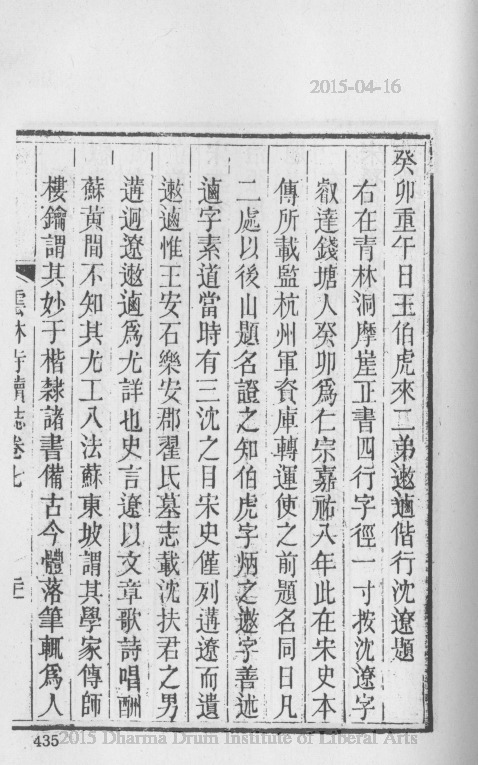 2015-04-16
癸卯重午日王伯虎來二弟遬逌偕行沈遼題
右在青林洞摩崖正書四行字徑一寸按沈遼字
叡達錢塘人癸卯爲仁宗嘉祐八年此在宋史本
傳所載監杭州軍資庫轉運使之前題名同日凡
二處以後山題名證之知伯虎字炳之遬字善述
逌字素道當時有三沈之目宋史僅列遘遼而遺
遬逌惟王安石樂安郡翟氏墓志載沈扶君之男
遘迥遼遬逌爲尤詳也史言遼以文章歌詩唱酬
蘇黃間不知其尤工入法蘇東坡謂其學家傳師
樓鑰謂其妙于楷隸諸書備古今體落筆輒爲人
雲林寺續志卷七
435
2015 Dharma Drum Institute of Liberal Arts